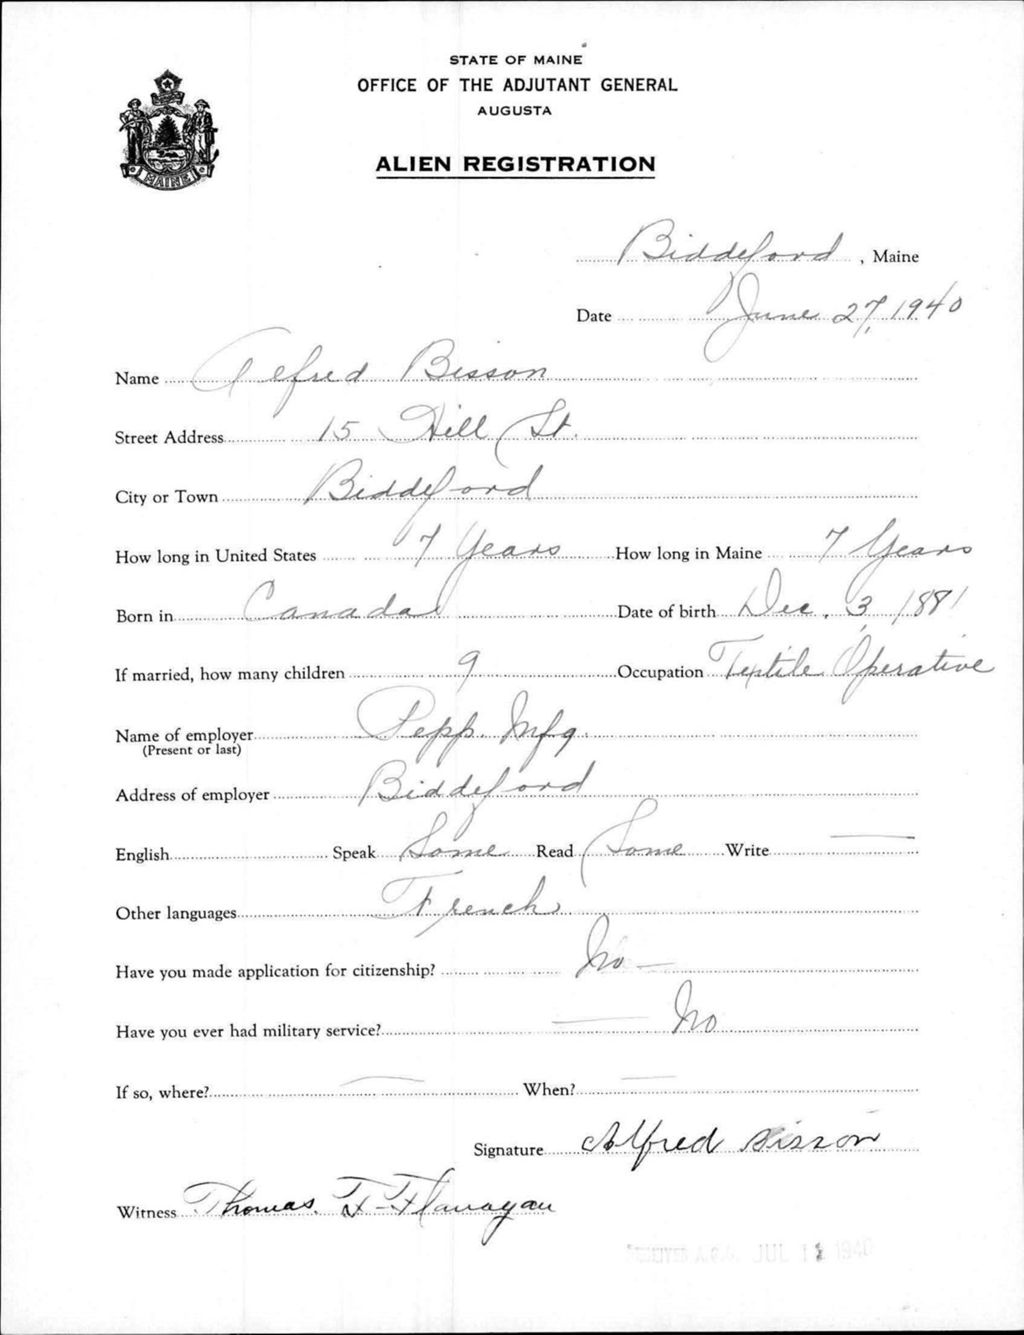 STATE OF MAINE
OFFICE OF THE ADJUTANT GENERAL
AUGUSTA
ALIEN REGISTRATION
MAINE
Biddeford, Maine
Date June 27, 1940
Name Alfred Bisson
Street Address 15 Hill St.
City or Town Biddeford
How long in United States 7 Years How long in Maine 7 Years
Born in Canada Date of birth Dec. 3, 1881
If married, how many children 9 Occupation Textile Operative
Name of employer Pepp. Mfg.
(Present or last)
Address of employer Biddeford
English Speak Some Read Some Write —
Other languages French
Have you made application for citizenship? No —
Have you ever had military service? — No
If so, where? — When? —
Signature Alfred Bisson
Witness Thomas. F. Flanagan
RECEIVED A.G.O. JUL 1940